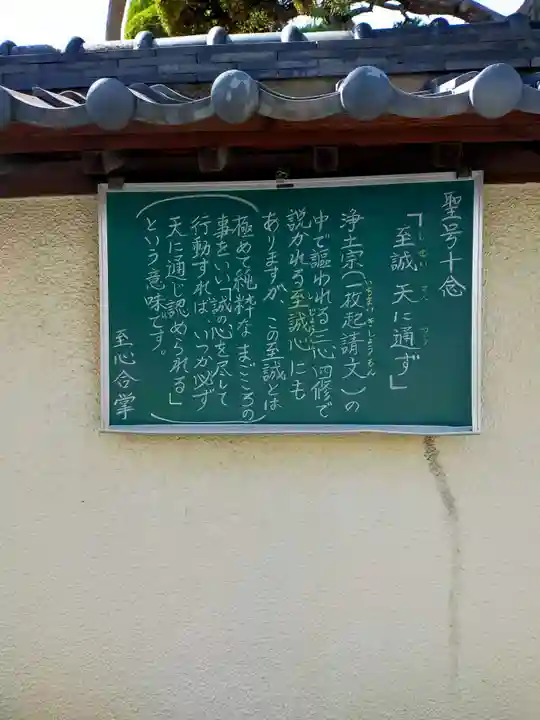 聖号十念
「至誠 天に通ず」
しせい てん つう
浄土宗(一枚起請文)の
いちまいきしょうもん
中で謳われる三心四修で
説かれる至誠心にも
しじょうしん
ありますが、この至誠とは
(極めて純粋な まごころの
事をいい「誠の心を尽して
行動すれば、いつか必ず
天に通じ認められる」
という意味です。)
至心合掌